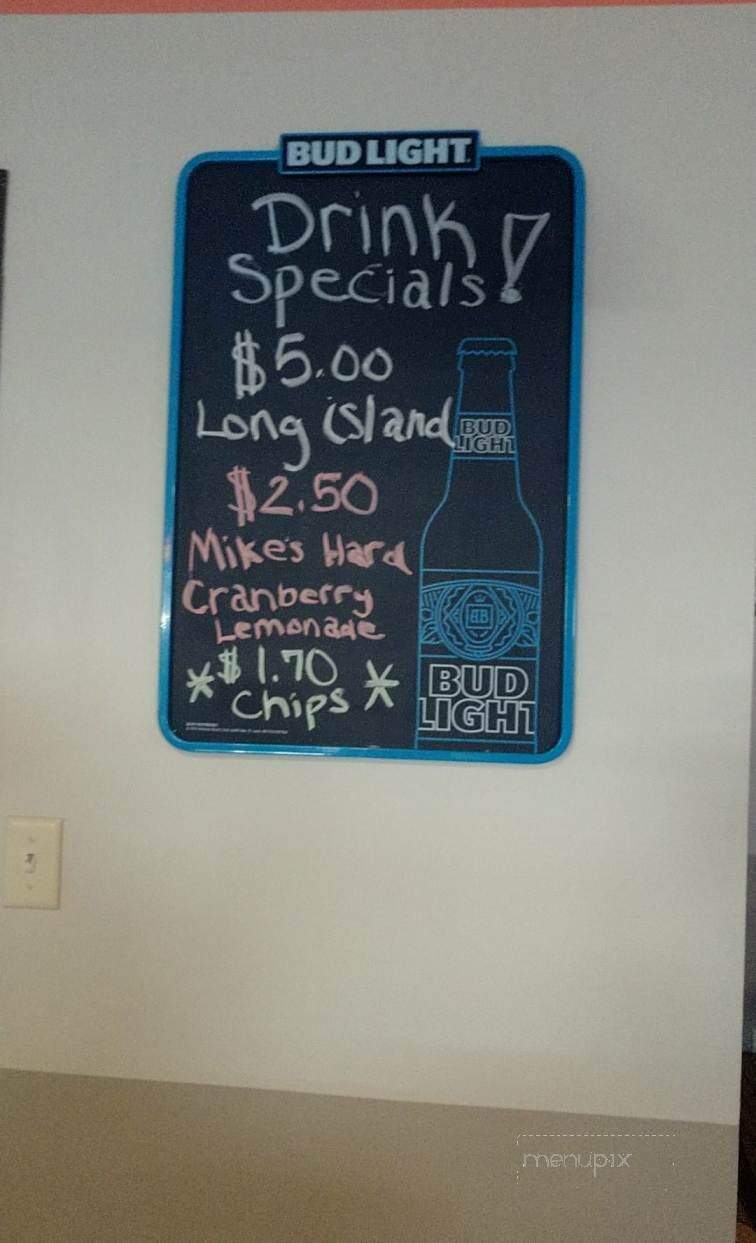 BUD LIGHT
Drink
Specials!
$5.00
Long island
$2.50
Mike's Hard
Cranberry
Lemonade
$1.70
* Chips *
BUD
LIGHT
BUD
LIGHT
menupix